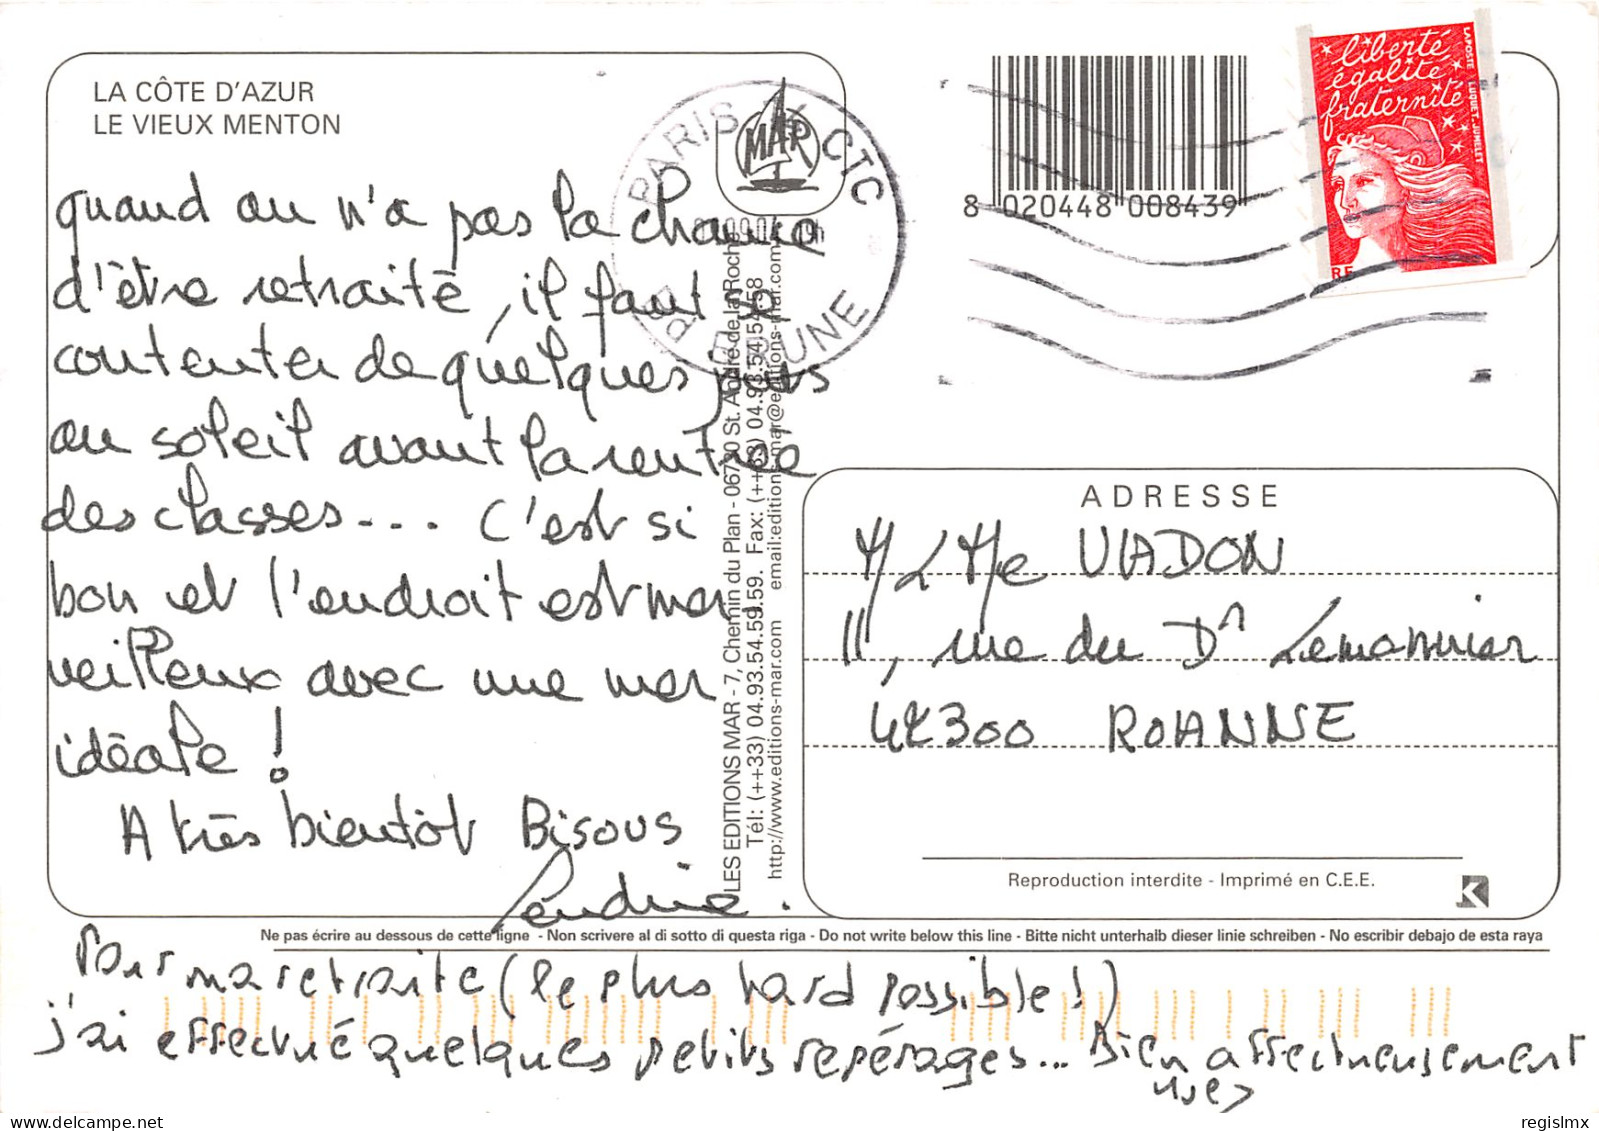 LA CÔTE D'AZUR
LE VIEUX MENTON
quand on n'a pas la chance
d'être retraité, il faut se
contenter de quelques jours
au soleil avant la rentrée
des classes... c'est si
bon et l'endroit est mer-
veilleux avec une mer
idéale !
A très bientôt Bisous
Sandrine.
Pour ma retraite (le plus tard possible !)
j'ai effectué quelques petits repérages... Bien affectueusement
MAR
PARIS CTC
LES EDITIONS MAR - 7, Chemin du Plan - 06730 St. André de la Roche
Tél: (++33) 04.93.54.59.59. Fax: (++33) 04.93.54.15.58
http://www.editions-mar.com email:editions-mar@editions-mar.com
8 020448 008439
liberté
égalité
fraternité
LA POSTE LUQUET-JUMELET
RF
ADRESSE
M & Me VIADON
11, rue du Dr Lemonnier
42300 ROANNE
Reproduction interdite - Imprimé en C.E.E.
K
Ne pas écrire au dessous de cette ligne - Non scrivere al di sotto di questa riga - Do not write below this line - Bitte nicht unterhalb dieser linie schreiben - No escribir debajo de esta raya
regislmx